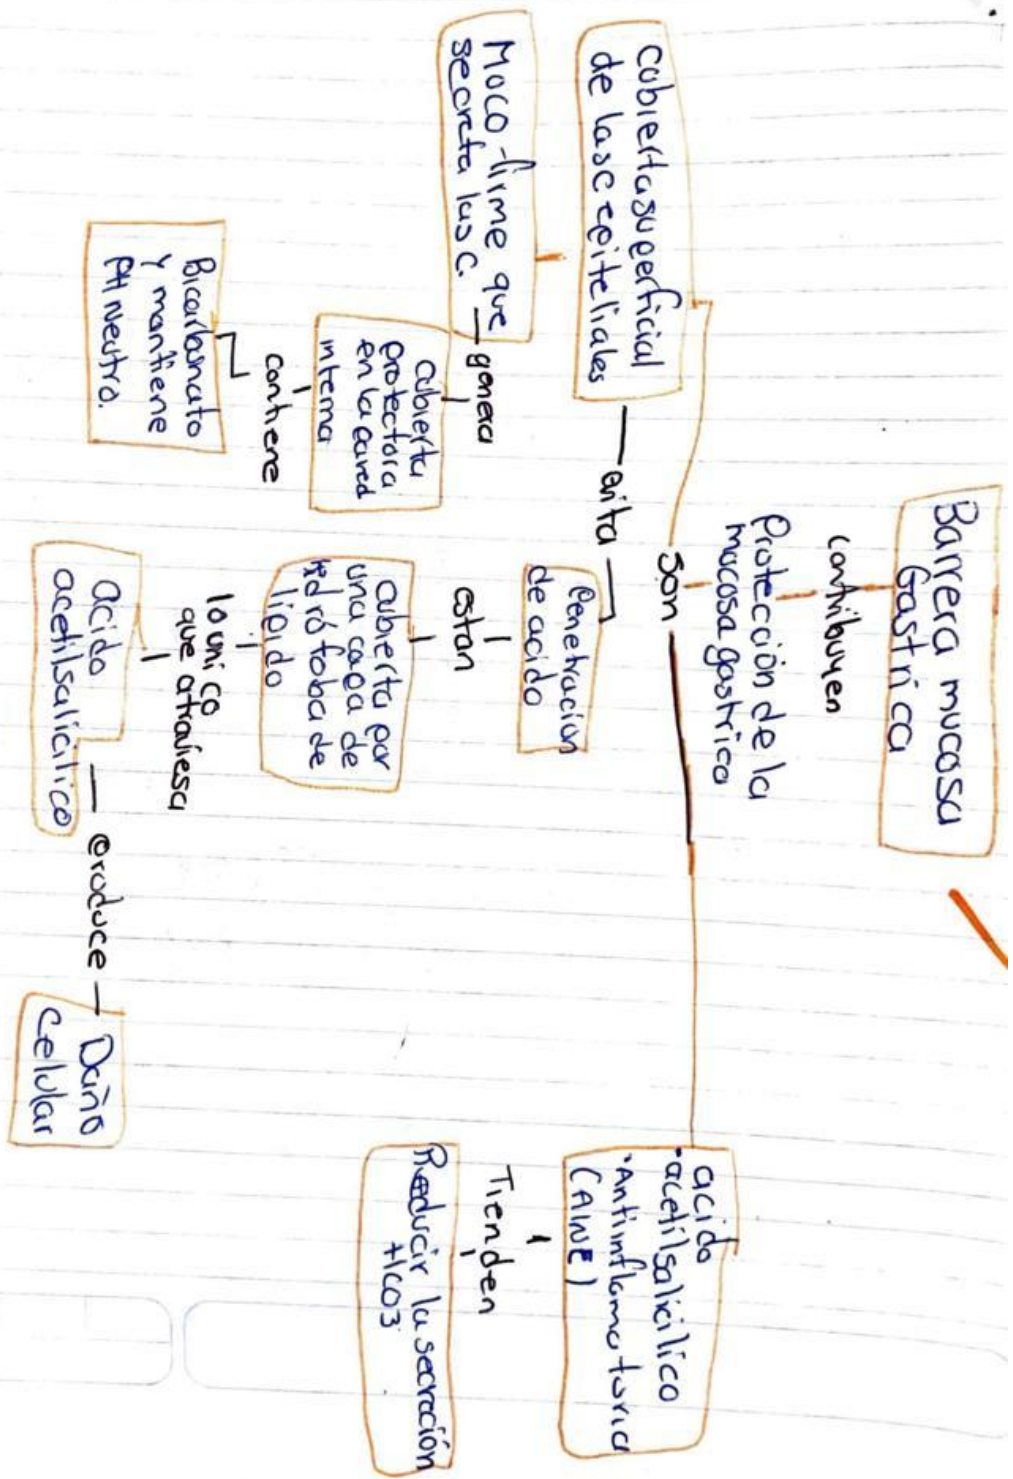 Barrera mucosa
Gastrica
contribuyen
Protección de la
mucosa gastrica
Son
Cubierta superficial
de las c epiteliales
evita
Penetracion
de acido
estan
cubierta por
una capa de
hidrófoba de
lipido
lo unico
que atraviesa
acido
acetilsalicilico
produce
Daño
celular
Moco firme que
secreta las c.
genera
cubierta
protectora
en la pared
interna
contiene
Bicarbonato
y mantiene
PH Neutro.
acido
acetilsalicilico
Antiinflamatoria
(AINE)
Tienden
Reducir la secreción
HCO3